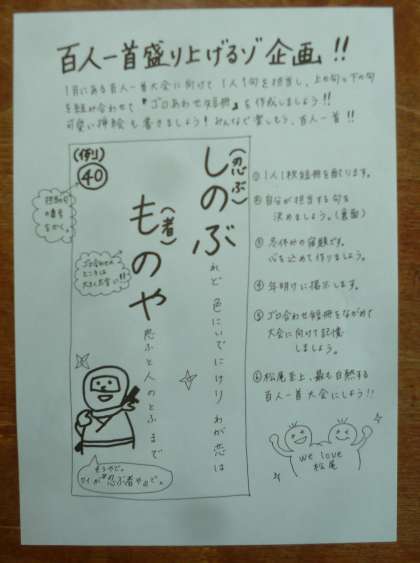 百人一首盛り上げるゾ企画!!
1月にある百人一首大会に向けて1人1句を担当し、上の句と下の句
を組み合わせて『ゴロあわせ短冊』を作成しましょう!!
可愛い挿絵も書きましょう!みんなで楽しもう、百人一首!!
(例)
40
担当の句
の番号
を書く。
(忍ぶ)
しのぶれど 色にいでにけり わが恋は
(者)
ものや思ふと人のとふまで
ゴロ合わせの
ところは
大きくお書い!!
そうやで。
ワイが"忍ぶ者や"で。
① 1人1枚短冊を配ります。
② 自分が担当する句を
決めましょう。(裏面)
③ 冬休みの宿題です。
心を込めて作りましょう。
④ 年明けに掲示します。
⑤ ゴロ合わせ短冊をながめて
大会に向けて記憶
しましょう。
⑥ 松尾至上、最も白熱する
百人一首大会にしよう!!
we love
松尾